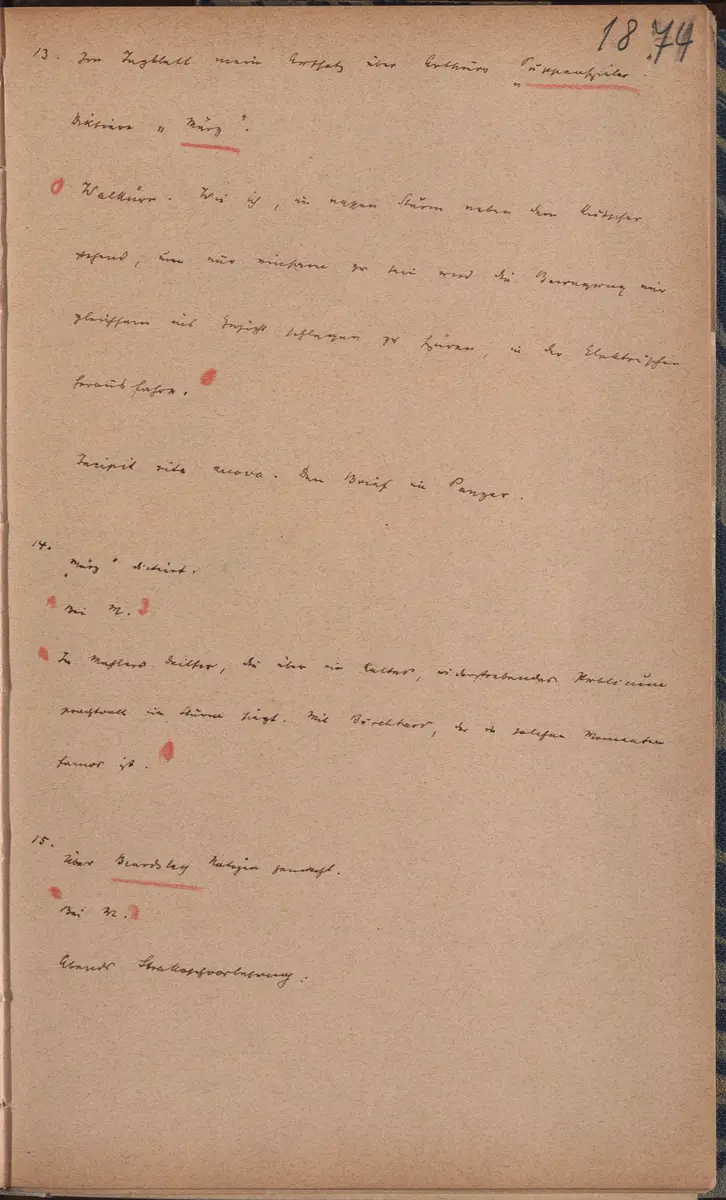 18 74
13. Im Tagblatt mein Aufsatz über Arthurs „Puppenspieler.
Diktiere „März".
Walküre. Wie ich, im nassen Sturm neben dem Kutscher
stehend, um nur einsam zu sein und die Bewegung mir
gleichsam ins Gesicht schlagen zu spüren, in der Elektrischen
herausfahre.
Incipit vita nuova. Den Brief im Panzer.
14. „März" dictirt.
Bei M.
In Mahlers Dritter, die über ein kaltes, widerstrebendes Publicum
prachtvoll im Sturme siegt. Mit Burckhard, der in solchen Momenten
famos ist.
15. Über Beardsley Notizen gemacht.
Bei M.
Abends Strakoschvorlesung.